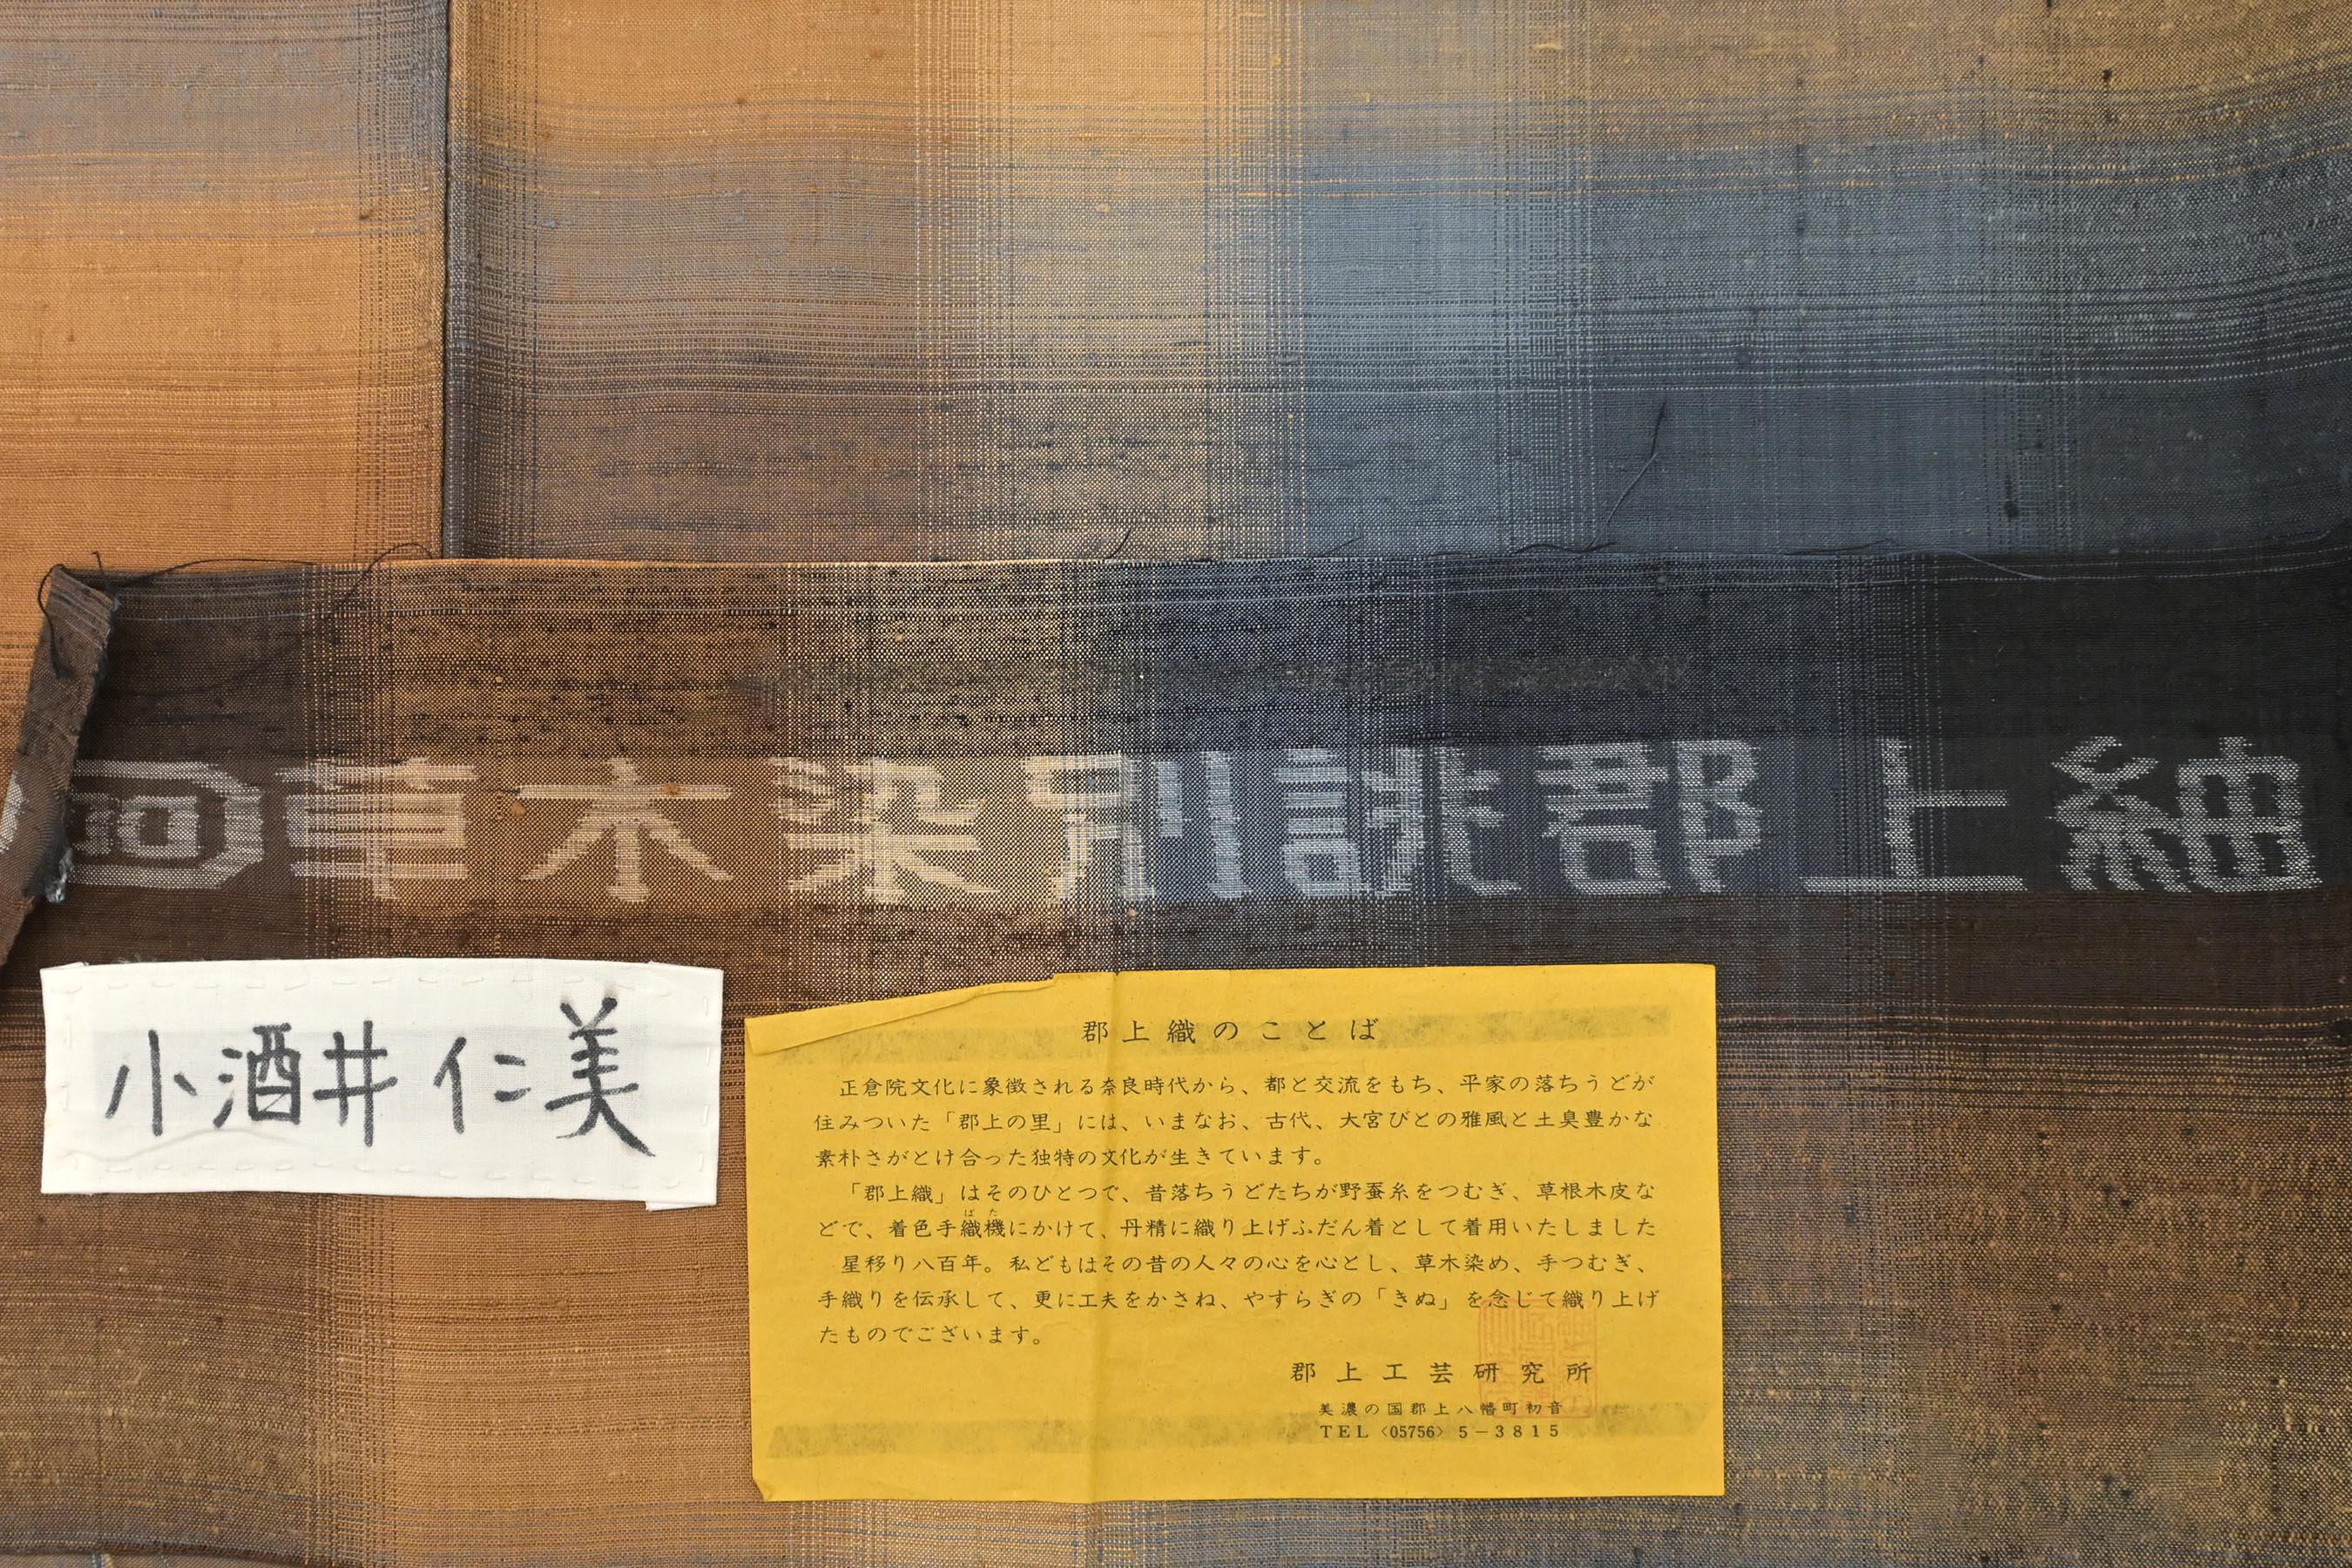 草木染別誂郡上紬
小酒井仁美
郡上織のことば
正倉院文化に象徴される奈良時代から、都と交流をもち、平家の落ちうどが
住みついた「郡上の里」には、いまなお、古代、大宮びとの雅風と土臭豊かな
素朴さがとけ合った独特の文化が生きています。
「郡上織」はそのひとつで、昔落ちうどたちが野蚕糸をつむぎ、草根木皮な
ばた
どで、着色手織機にかけて、丹精に織り上げふだん着として着用いたしました
星移り八百年。私どもはその昔の人々の心を心とし、草木染め、手つむぎ、
手織りを伝承して、更に工夫をかさね、やすらぎの「きぬ」を念じて織り上げ
たものでございます。
郡上工芸研究所
美濃の国郡上八幡町初音
TEL〈05756〉5－3815